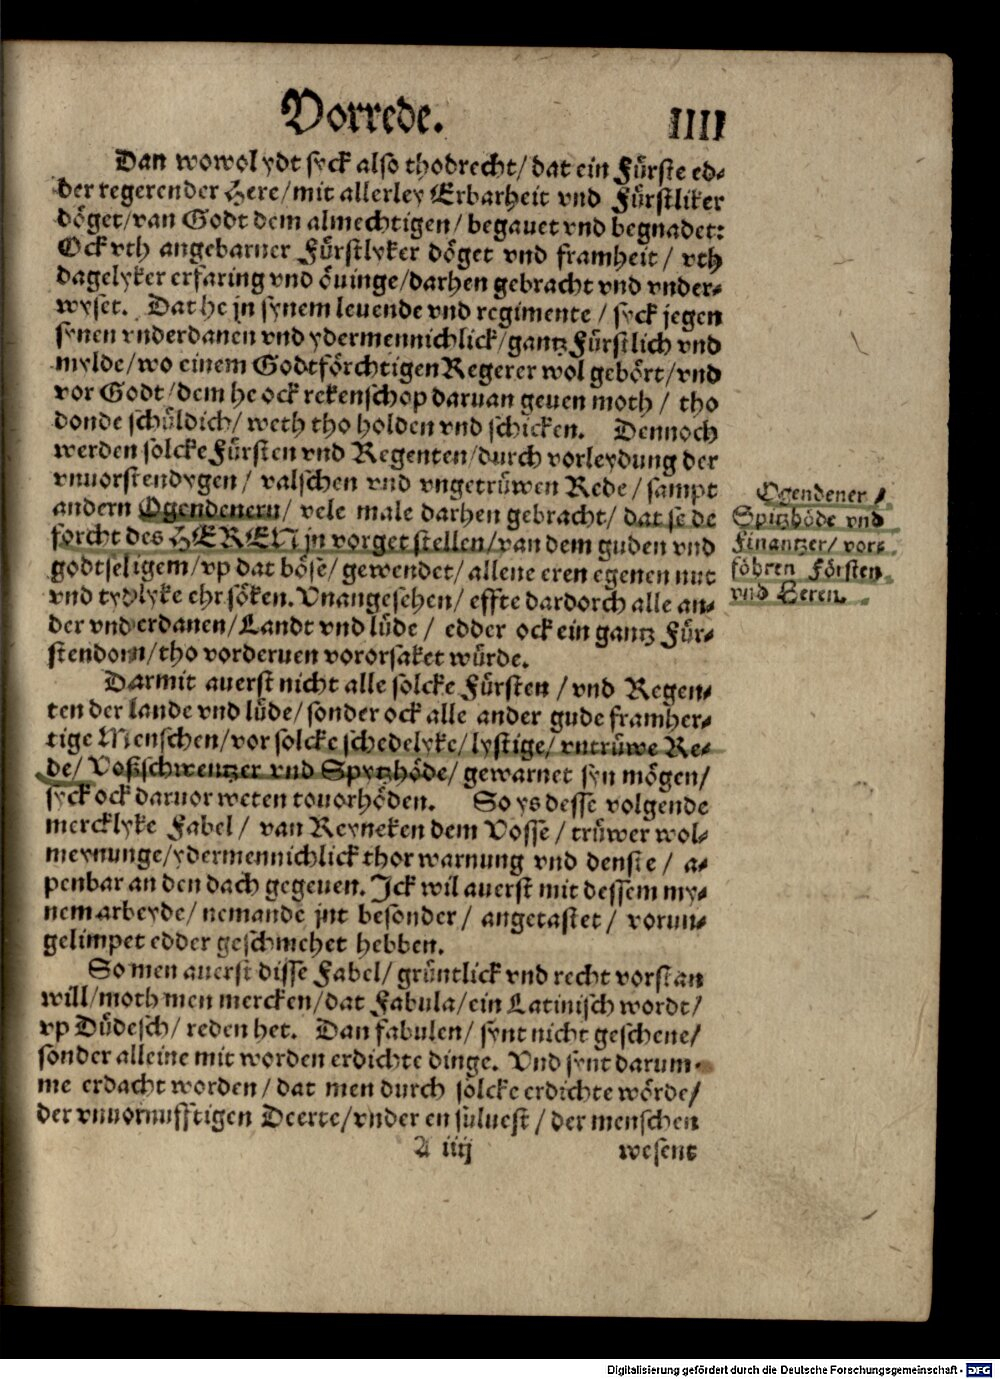 Vorrede. IIII
Dan wowol ydt syck also thodrecht/ dat ein Fürste ed-
der regerender Here/mit allerley Erbarheit vnd Fürstliker
döget/van Godt dem almechtigen/ begauet vnd begnadet:
Ock vth angebarner Fürstlyker döget vnd framheit/ vth
dagelyker erfaring vnd öuinge/darhen gebracht vnd vnder-
wyset. Dat he jn synem leuende vnd regimente/ syck jegen
synen vnderdanen vnd ydermennichlick/gantz Fürstlich vnd
mylde/wo einem Godtförchtigen Regerer wol gebört/vnd
vor Godt/dem he ock rekenschop daruan geuen moth/ tho
donde schüldich/ weth tho holden vnd schicken. Dennoch
werden solcke Fürsten vnd Regenten/durch vorleydung der
vnuorstendygen/ valschen vnd vngetrüwen Rede/ sampt
andern Ogendenern/ vele male darhen gebracht/ dat se de
forcht des HEREN jn vorget stellen/van dem guden vnd
godtseligem/vp dat böse/ gewendet/ allene eren egenen nut
vnd tydlyke ehr söken. Vnangesehen/ effte dardorch alle an-
der vnderdanen/Landt vnd lüde/ edder ock ein gantz Für-
stendom/tho vorderuen vororsaket würde.
Ogendener/
Spitzhöde vnd
Finantzer/ vor-
föhren Försten
vnd Heren.
Darmit auerst nicht alle solcke Fürsten/vnd Regen-
ten der lande vnd lüde/sonder ock alle ander gude framher-
tige Menschen/vor solcke schedelyke/lystige/vntrüwe Re-
de/ Voßschwentzer vnd Spytzhöde/ gewarnet syn mögen/
syck ock daruor weten touorhöden. So ys desse volgende
mercklyke Fabel/ van Reyneken dem Vosse/ trüwer wol-
meynunge/ydermennichlick thor warnung vnd denste/ a-
penbar an den dach gegeuen. Ick wil auerst mit dessem my-
nem arbeyde/nemande jnt besonder/ angetastet/ vorun-
gelimpet edder geschmehet hebben.
So men auerst disse Fabel/ grüntlick vnd recht vorstan
will/moth men mercken/dat Fabula/ein Latinisch wordt/
vp Düdesch/ reden het. Dan fabulen/ synt nicht geschene/
sonder alleine mit worden erdichte dinge. Vnd synt darum-
me erdacht worden/dat men durch solcke erdichte wörde/
der vnuornufftigen Deerte/vnder en süluest/der menschen
A iiij wesent
Digitalisierung gefördert durch die Deutsche Forschungsgemeinschaft - DFG